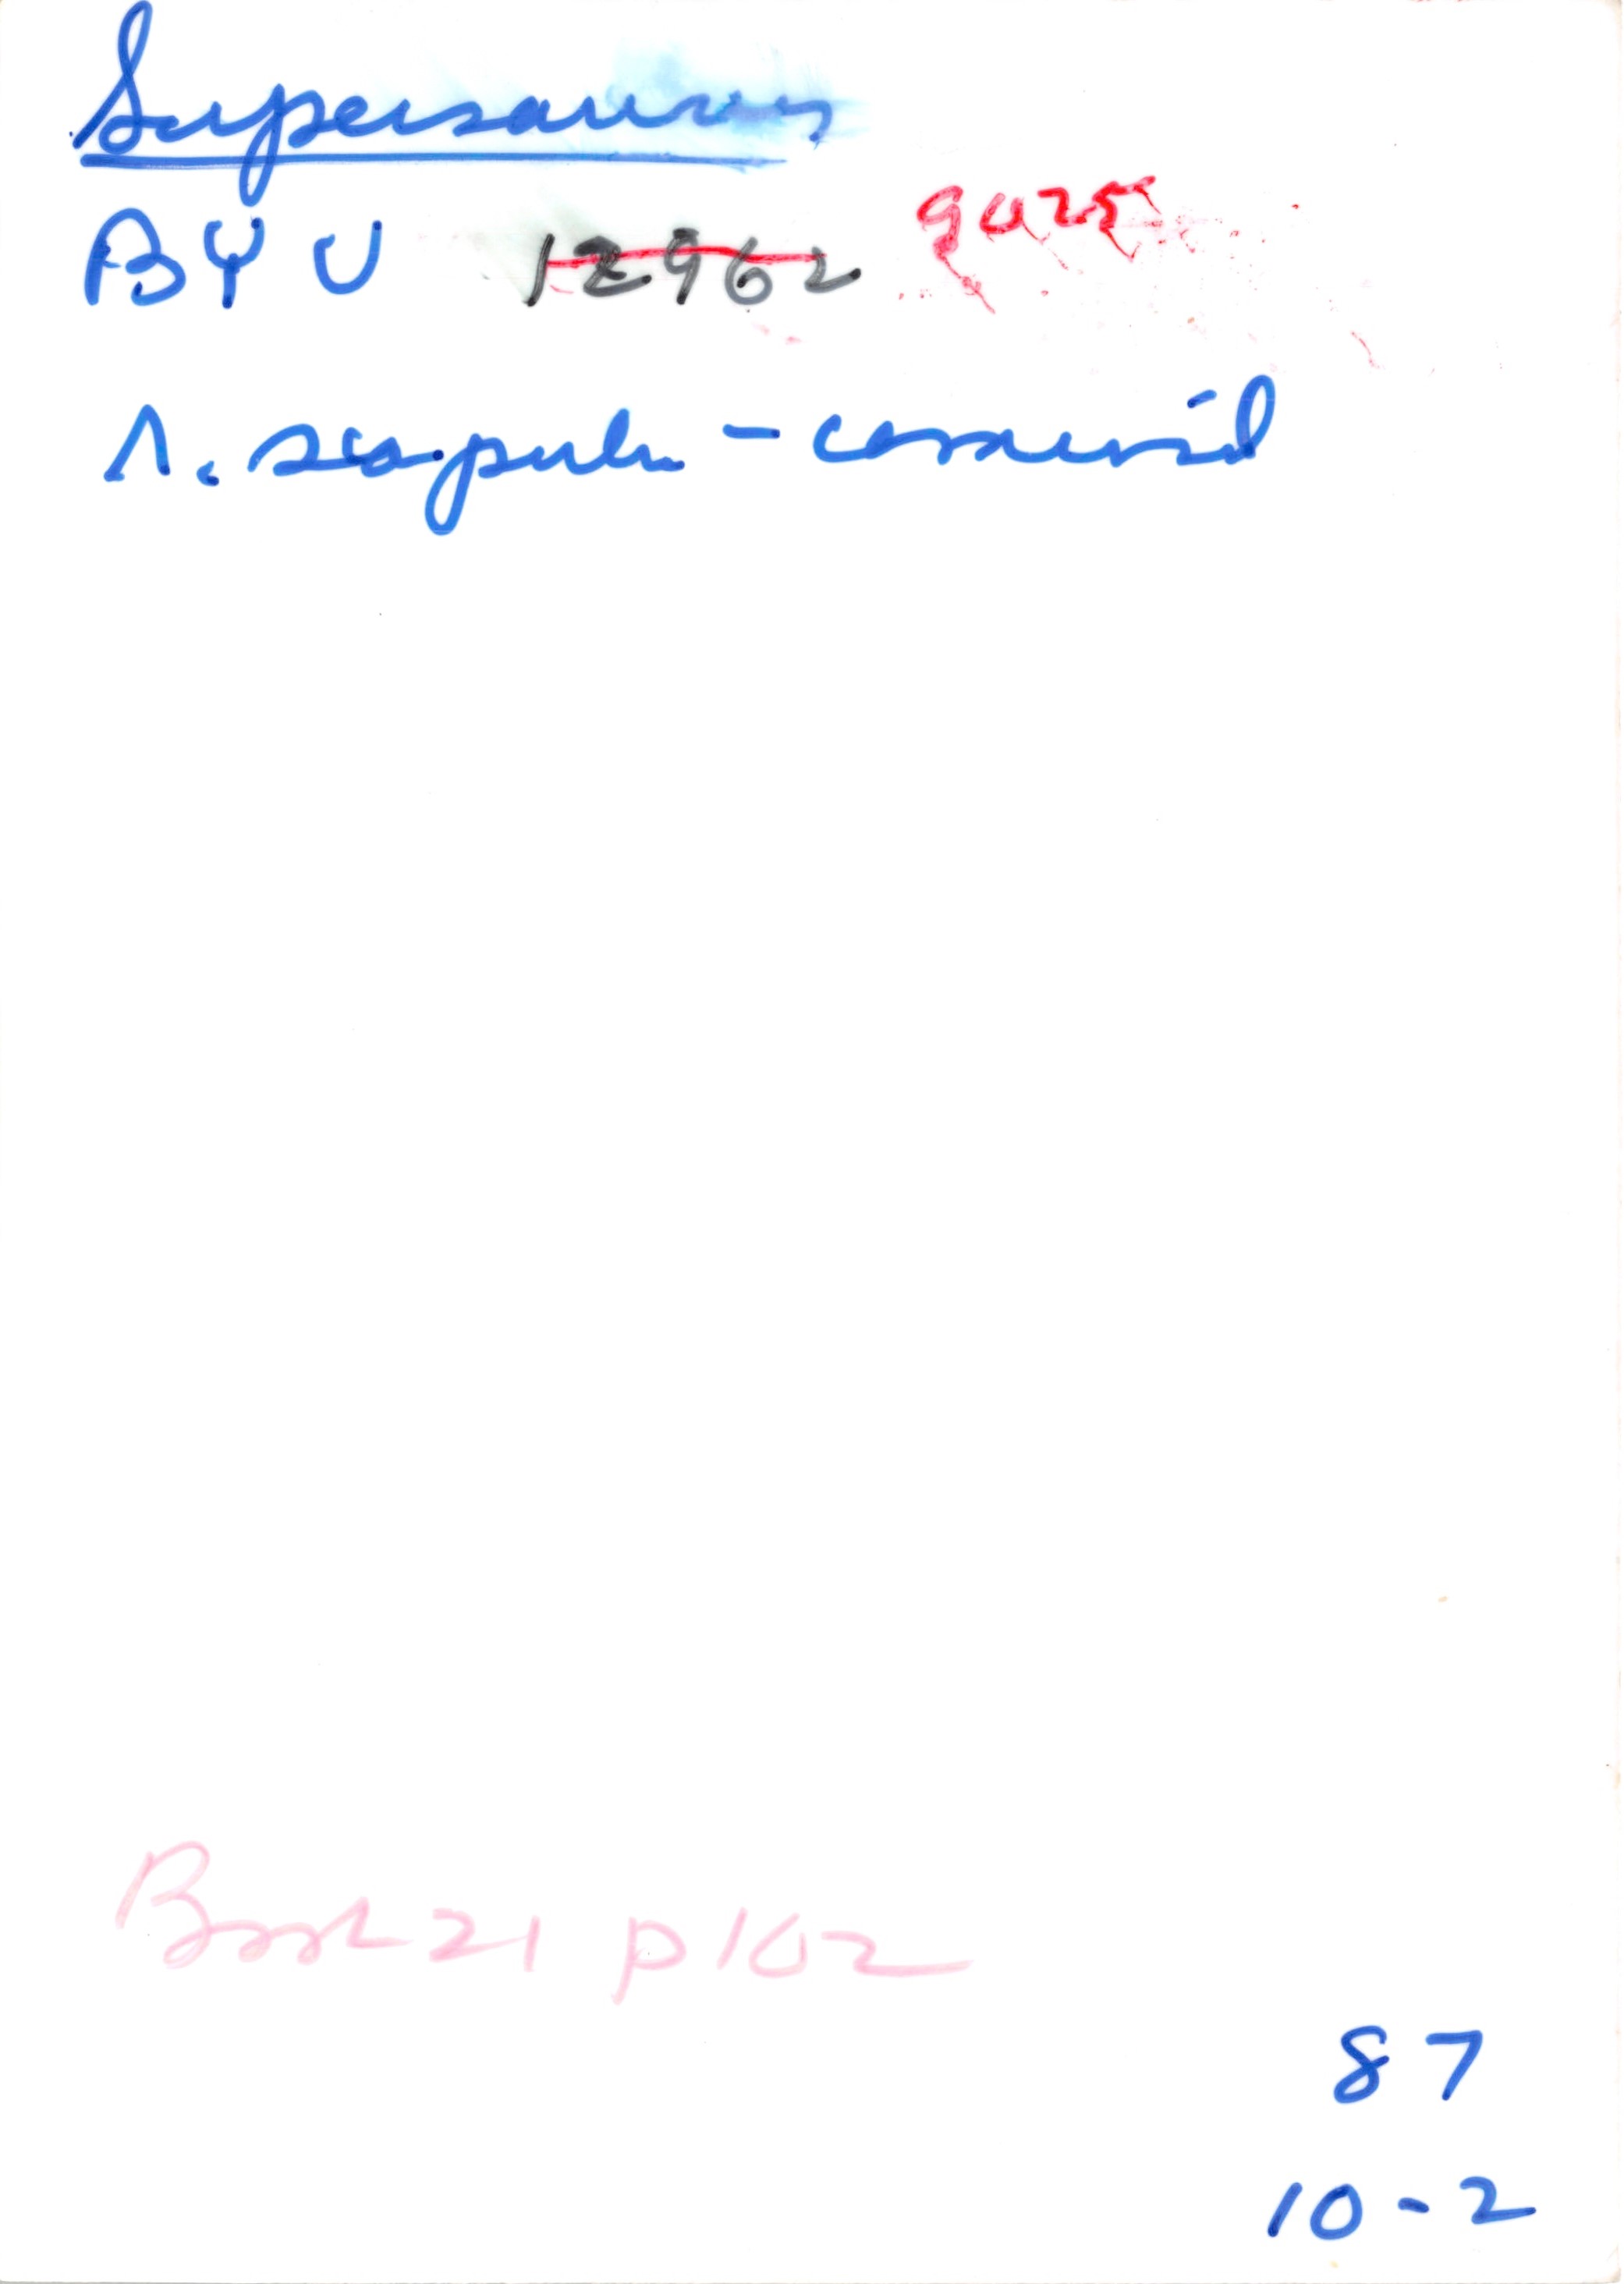 Supersaurus
BYU 12962 9025
r. scapula - coracoid
Book 21 p 102
87
10-2